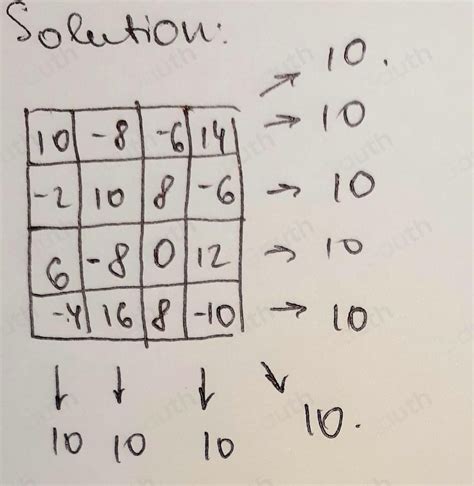 Solution:
10.
10 -8 -6 14 → 10
-2 10 8 -6 → 10
6 -8 0 12 → 10
-4 16 8 -10 → 10
↓ ↓ ↓ ↘
10 10 10 10.